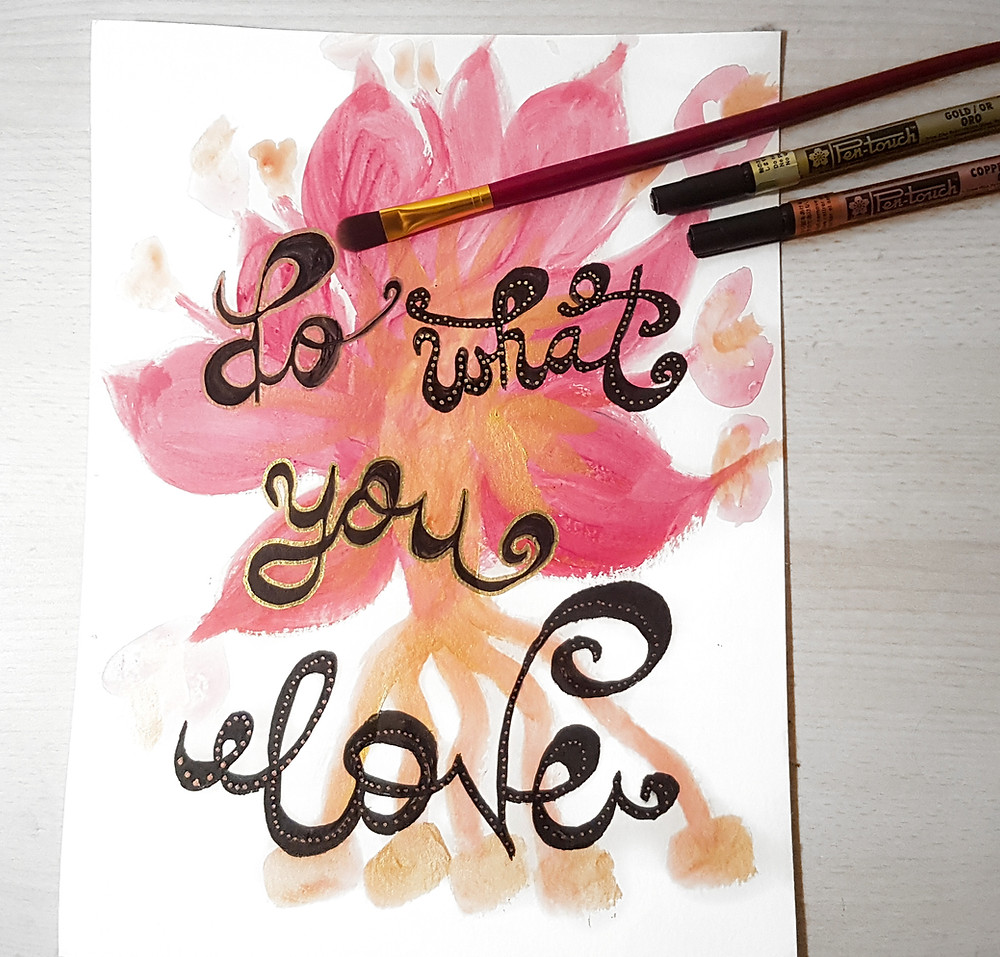 do what
you
love
Pen-touch GOLD/OR ORO
Pen-touch COPP